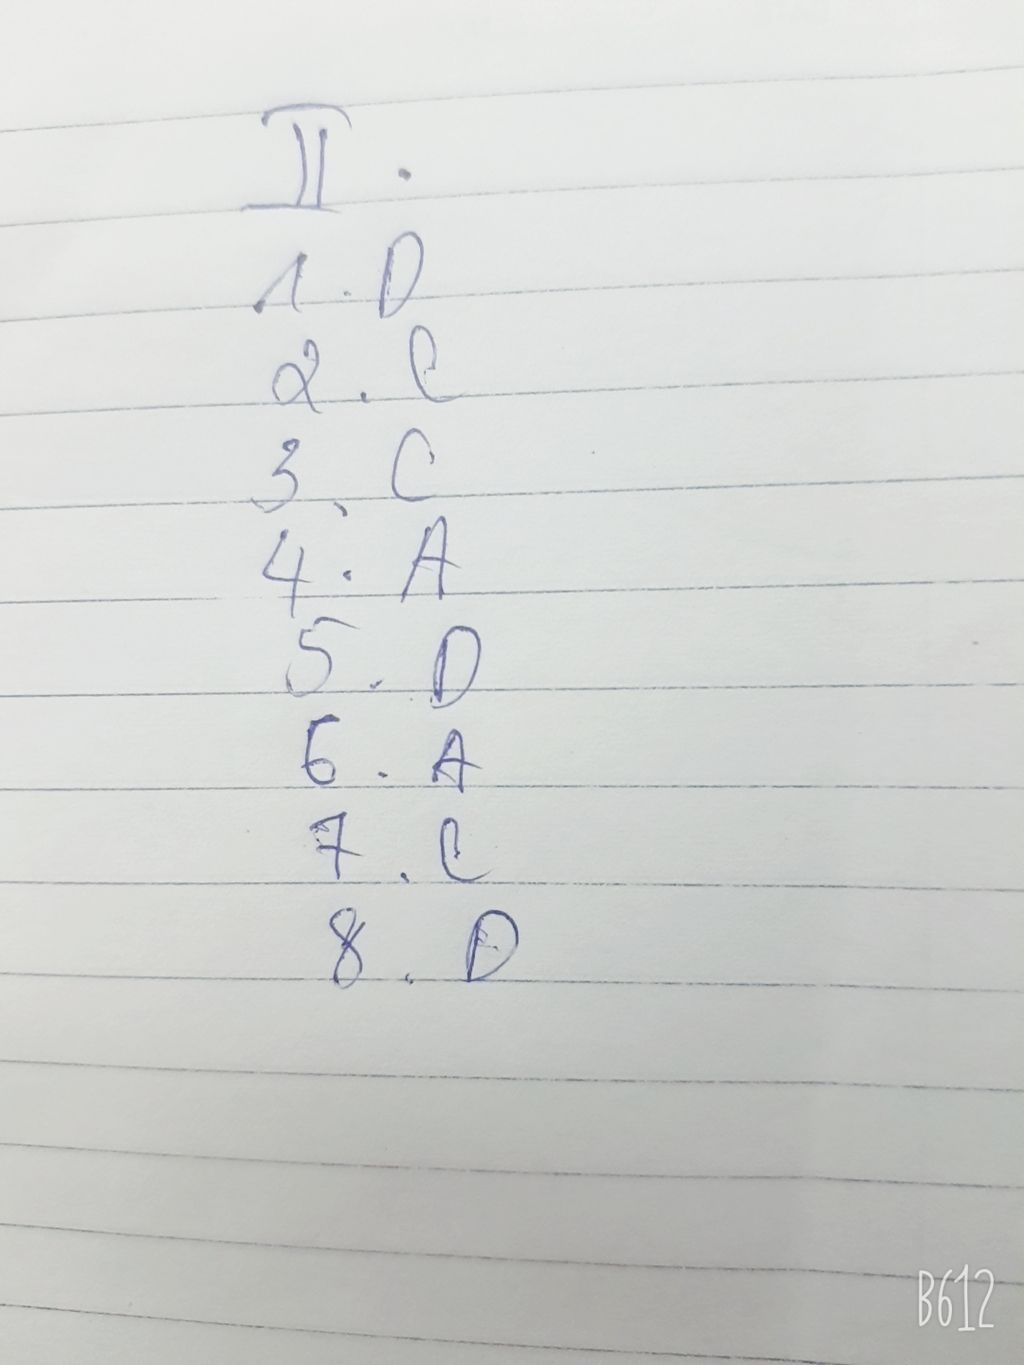 II.
1. D
2. C
3. C
4. A
5. D
6. A
7. C
8. D
B612